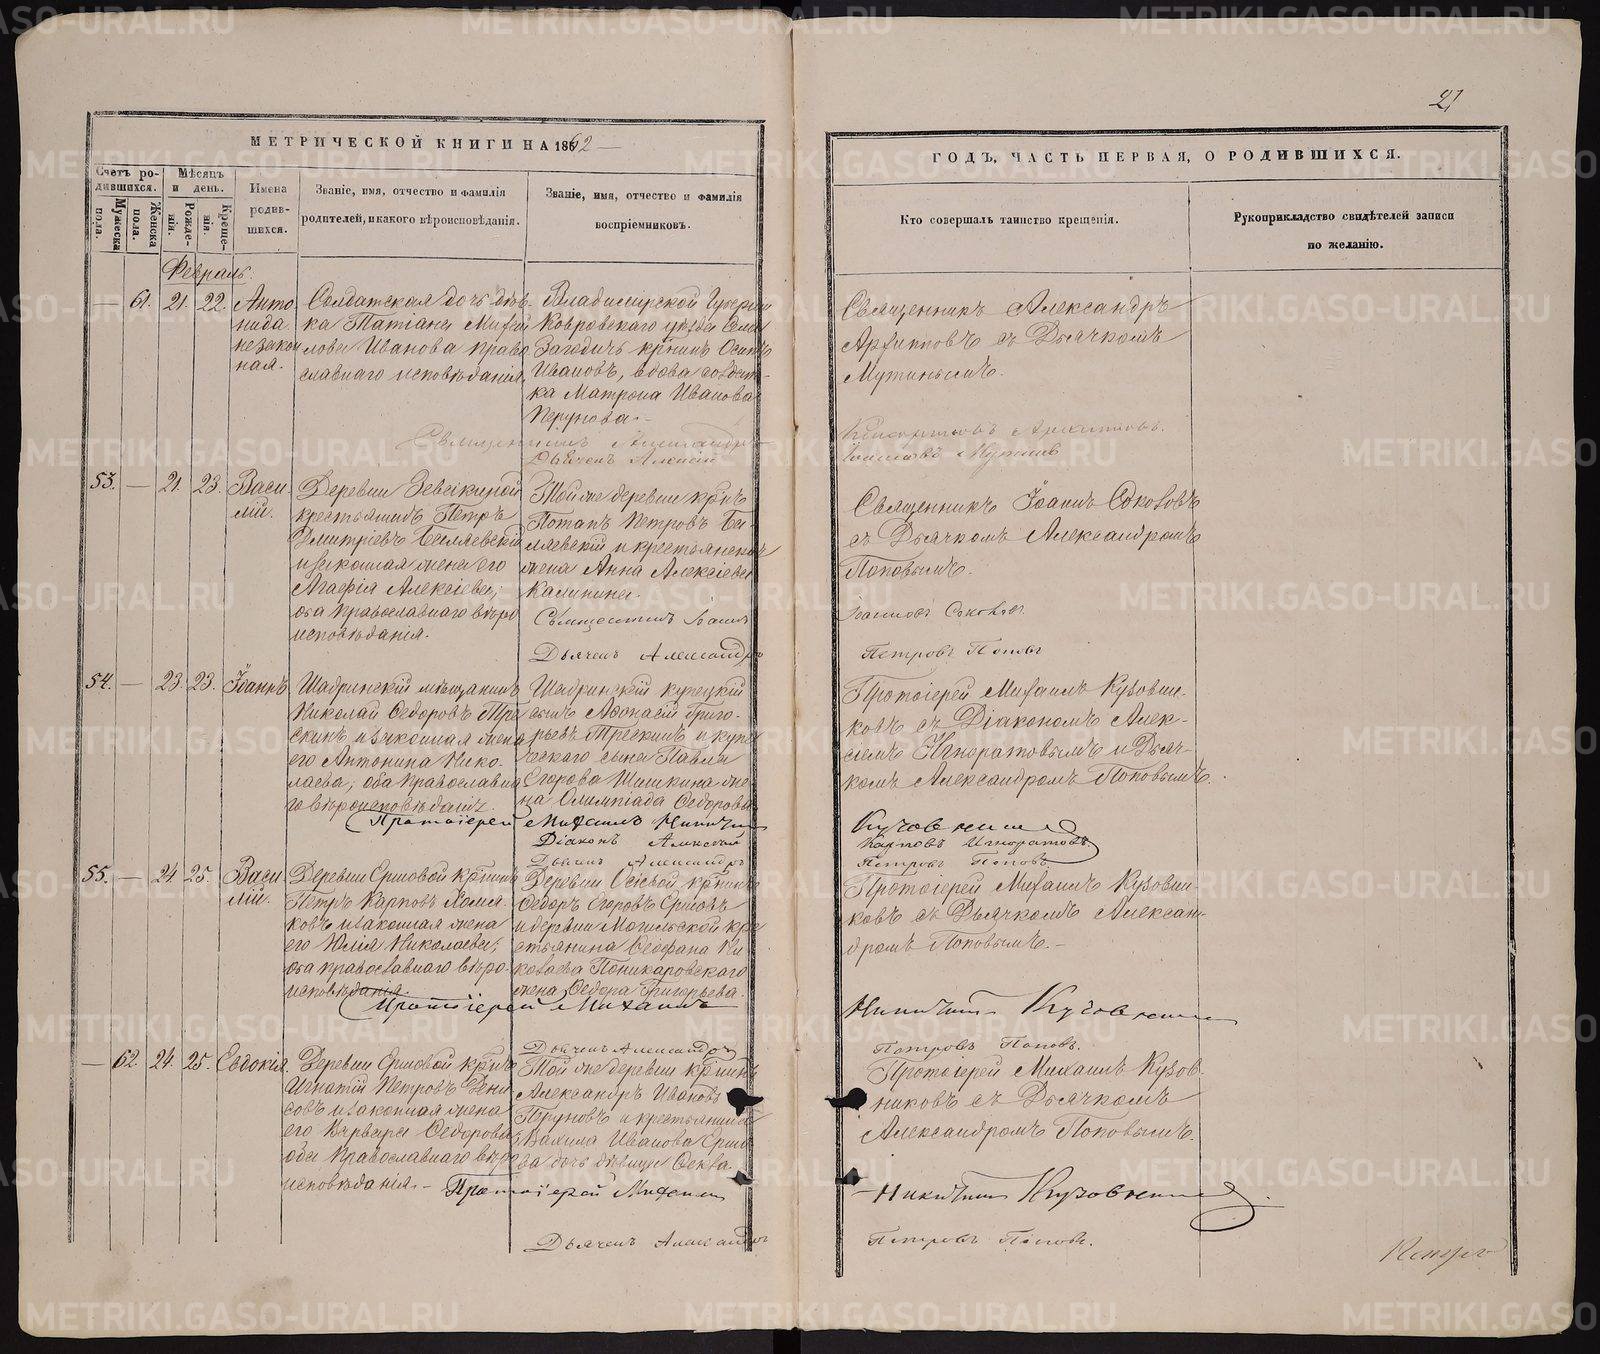 21
МЕТРИЧЕСКОЙ КНИГИ НА 1862
Счетъ родившихся.
Мужеска пола.
Женска пола.
Мѣсяцъ и день.
Рожденія.
Крещенія.
Имена родившихся.
Званіе, имя, отчество и фамилія
родителей, и какого вѣроисповѣданія.
Званіе, имя, отчество и фамилія
воспріемниковъ.
ГОДЪ, ЧАСТЬ ПЕРВАЯ, О РОДИВШИХСЯ.
Кто совершалъ таинство крещенія.
Рукоприкладство свидѣтелей записи
по желанію.
Февраль.
— 61. 21. 22.
Анто
нида
незакон
ная.
Солдатская дочь дѣв
ка Татіана
Иванова право
славнаго исповѣданія.
Владимірской Губерніи
Ковровскаго уѣзда
Осипъ
Ивановъ, вдова солдат
ка Матрона Иванова
Перунова.
Священникъ Александръ
Дьячекъ Алексѣй
Священникъ Александръ
Архиповъ съ Дьячкомъ
53. — 21. 23.
Васи
лій.
Деревни
крестьянинъ Петръ
Дмитріевъ Бѣляевскій
и законная жена его
Агафія Алексіева;
оба православнаго вѣро
исповѣданія.
Той же деревни
Потапъ Петровъ Бѣ-
ляевскій и крестьянская
жена Анна Алексіева
Калинина.
Священникъ Іоаннъ
Дьячекъ Александръ
Священникъ Іоаннъ Соколовъ
съ Дьячкомъ Александромъ
Поповымъ.
Іоанновъ Соколовъ
Петровъ Поповъ
54. — 23. 23.
Іоаннъ
Шадринскій мѣщанинъ
Николай Ѳедоровъ Тре
скинъ и законная жена
его Антонина Нико-
лаева; оба православна
го вѣроисповѣданія.
Шадринскій купецкій
сынъ Аѳонасій Григо-
рьевъ Трескинъ и купе
ческаго сына Павла
Егорова Шишкина же
на Олимпіада Ѳедорова
Протоіерей Михаилъ Никитинъ
Діаконъ Алексѣй
Дьячекъ Александръ
Протоіерей Михаилъ Кузовни-
ковъ съ Діакономъ Алек-
сіемъ Игноратовымъ и Дьяч-
комъ Александромъ Поповымъ.
Кузовниковъ
Карповъ Игноратовъ
Петровъ Поповъ
55. — 24. 25.
Васи
лій.
Деревни Ершовой
Петръ Карповъ
ковъ и законная жена
его Юлія Николаева;
оба православнаго вѣро-
исповѣданія.
Деревни Осіевой
Ѳедоръ Егоровъ Ершовъ
и деревни Могильской кре
стьянина Стефана Ни
колаева Поникаровскаго
жена Ѳедора Григорьева.
Протоіерей Михаилъ
Дьячекъ Александръ
Протоіерей Михаилъ Кузовни-
ковъ съ Дьячкомъ Алексан-
дромъ Поповымъ.
Никитинъ Кузовниковъ
Петровъ Поповъ.
— 62. 24. 25.
Евдокія.
Деревни Ершовой
Игнатій Петровъ Дени
совъ и законная жена
его Варвара Ѳедорова
оба православнаго вѣро
исповѣданія.
Той же деревни
Александръ Ивановъ
Труновъ и крестьянина
Вавила Иванова Ершо
ва дочь дѣвица Ѳекла.
Протоіерей Михаилъ
Дьячекъ Александръ
Протоіерей Михаилъ Кузов-
никовъ съ Дьячкомъ
Александромъ Поповымъ.
Никитинъ Кузовниковъ
Петровъ Поповъ.
METRIKI.GASO-URAL.RU